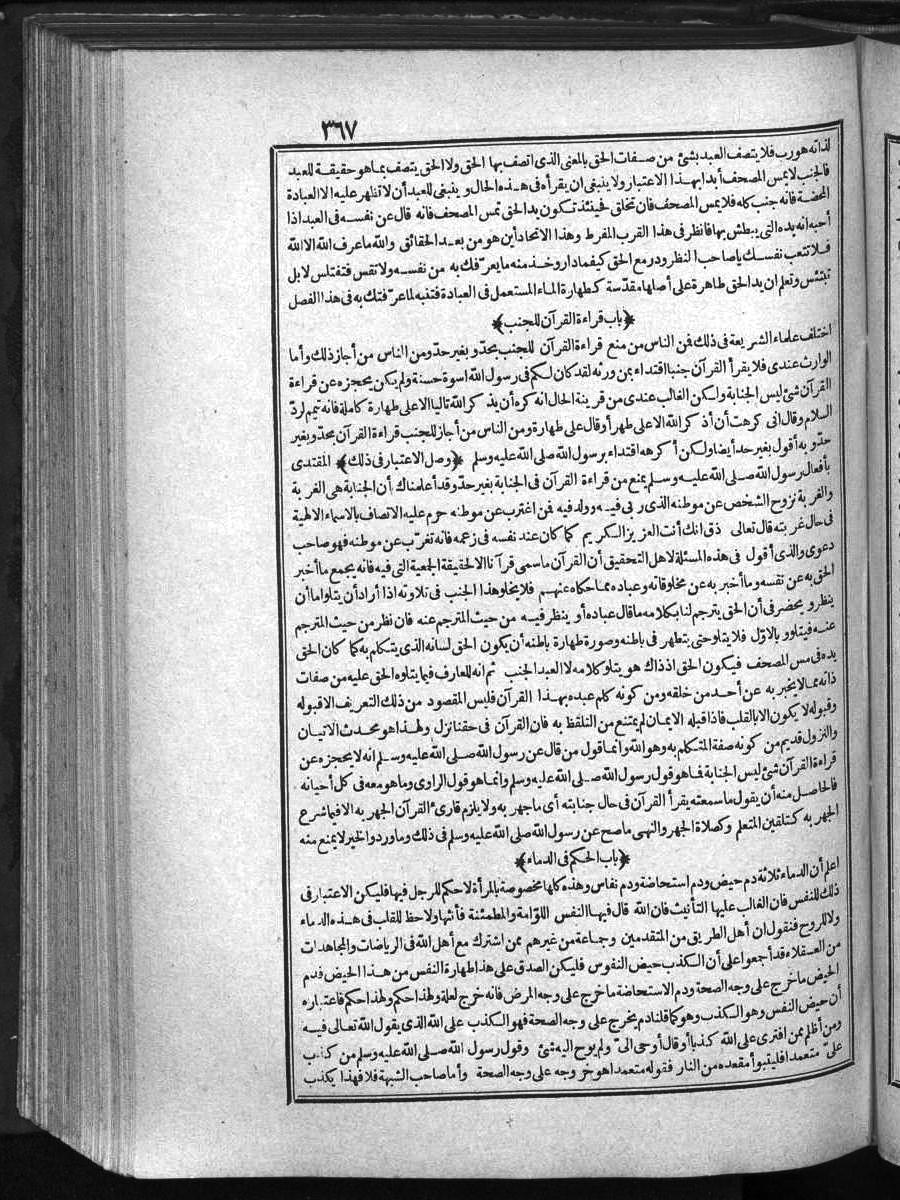 ٣٦٧
لذاته هو رب فلا يتصف العبد بشئ من صفات الحق بالمعنى الذى اتصف بها الحق ولا الحق يتصف بما هو حقيقة للعبد
فالجنب لا يمس المصحف أبدا بهذا الاعتبار ولا ينبغى ان يقرأه فى هذه الحال وينبغى للعبد أن لا تظهر عليه الا العبادة
المحضة فانه جنب كله فلا يمس المصحف فان تخلق فحينئذ تكون يد الحق تمس المصحف فانه قال عن نفسه فى العبد اذا
أحبه انه يده التى يبطش بها فانظر فى هذا القرب المفرط وهذا الاتحاد أين هو من بعد الحقائق والله ما عرف الله الا الله
فلا تتعب نفسك يا صاحب النظر ودر مع الحق كيفما دار وخذ منه ما يعرّفك به من نفسه ولا تقس فتفتلس لا بل
تبتئس وتعلم ان يد الحق طاهرة على أصلها مقدّسة كطهارة الماء المستعمل فى العبادة فتنبه لما عرّفتك به فى هذا الفصل
﴿باب قراءة القرآن للجنب﴾
اختلف علماء الشريعة فى ذلك فمن الناس من منع قراءة القرآن للجنب بحدّ وبغير حدّ ومن الناس من أجاز ذلك وأما
الوارث عندى فلا يقرأ القرآن جنبا اقتداء بمن ورثه لقد كان لكم فى رسول الله اسوة حسنة ولم يكن يحجزه عن قراءة
القرآن شئ ليس الجنابة ولكن الغالب عندى من قرينة الحال انه كره أن يذكر الله تاليا الا على طهارة كاملة فانه تيمم لردّ
السلام وقال انى كرهت أن أذكر الله الا على طهر أو قال على طهارة ومن الناس من أجاز للجنب قراءة القرآن بحدّ وبغير
حدّ وبه أقول بغير حد أيضا ولكن أكرهه اقتداء برسول الله صلى الله عليه وسلم ﴿وصل الاعتبار فى ذلك﴾ المقتدى
بأفعال رسول الله صلى الله عليه وسلم يمنع من قراءة القرآن فى الجنابة بغير حدّ وقد أعلمناك أن الجنابة هى الغربة
والغربة نزوح الشخص عن موطنه الذى ربى فيه وولد فيه فمن اغترب عن موطنه حرم عليه الاتصاف بالاسماء الالهية
فى حال غربته قال تعالى ذق انك أنت العزيز الكريم كما كان عند نفسه فى زعمه فانه تغرّب عن موطنه فهو صاحب
دعوى والذى أقول فى هذه المسئلة لاهل التحقيق أن القرآن ما سمى قرآنا الا لحقيقة الجمعية التى فيه فانه يجمع ما أخبر
الحق به عن نفسه وما أخبر به عن مخلوقاته وعباده مما حكاه عنهم فلا يخلو هذا الجنب فى تلاوته اذا أراد أن يتلو اما أن
ينظر ويحضر فى أن الحق يترجم لنا بكلامه ما قال عباده أو ينظر فيه من حيث المترجم عنه فان نظر من حيث المترجم
عنه فيتلو وبالاوّل فلا يتلو حتى يتطهر فى باطنه وصورة طهارة باطنه أن يكون الحق لسانه الذى يتكلم به كما كان الحق
يده فى مس المصحف فيكون الحق اذ ذاك هو يتلو كلامه لا العبد الجنب ثم انه للعارف فيما يتلوه الحق عليه من صفات
ذاته مما لا يخبر به عن أحد من خلقه ومن كونه كلم عبده بهذا القرآن فليس المقصود من ذلك التعريف الا قبوله
وقبوله لا يكون الا بالقلب فاذا قبله الايمان لم يمتنع من التلفظ به فان القرآن فى حقنا نزل ولهذا هو محدث الاتيان
والنزول قديم من كونه صفة المتكلم به وهو الله وانما قول من قال عن رسول الله صلى الله عليه وسلم انه لا يحجزه عن
قراءة القرآن شئ ليس الجنابة فما هو قول رسول الله صلى الله عليه وسلم وانما هو قول الراوى وما هو معه فى كل أحيانه
فالحاصل منه أن يقول ما سمعته يقرأ القرآن فى حال جنابته أى ما جهر به ولا يلزم قارئ القرآن الجهر به الا فيما شرع
الجهر به كتلقين المتعلم وكصلاة الجهر والنهى ما صح عن رسول الله صلى الله عليه وسلم فى ذلك وما ورد والخبر لا يمنع منه
﴿باب الحكم فى الدماء﴾
اعلم أن الدماء ثلاثة دم حيض ودم استحاضة ودم نفاس وهذه كلها مخصوصة بالمرأة لا حكم للرجل فيها فليكن الاعتبار فى
ذلك للنفس فان الغالب عليها التأنيث فان الله قال فيها النفس اللوّامة والمطمئنة فأنثها ولاحظ للقلب فى هذه الدماء
ولا للروح فنقول ان أهل الطريق من المتقدمين وجماعة من غيرهم ممن اشترك مع أهل الله فى الرياضات والمجاهدات
من العقلاء قد أجمعوا على أن الكذب حيض النفوس فليكن الصدق على هذا طهارة النفس من هذا الحيض فدم
الحيض ما خرج على وجه الصحة ودم الاستحاضة ما خرج على وجه المرض فانه خرج لعلة ولهذا حكم ولهذا حكم فاعتباره
أن حيض النفس وهو الكذب وهو كما قلنا دم يخرج على وجه الصحة فهو الكذب على الله الذى يقول الله تعالى فيه
ومن أظلم ممن افترى على الله كذبا أو قال أوحى الىّ ولم يوح اليه شئ وقول رسول الله صلى الله عليه وسلم من كذب
علىّ متعمدا فليتبوأ مقعده من النار فقوله متعمدا هو خروجه على وجه الصحة وأما صاحب الشبهة فلا فهذا يكذب